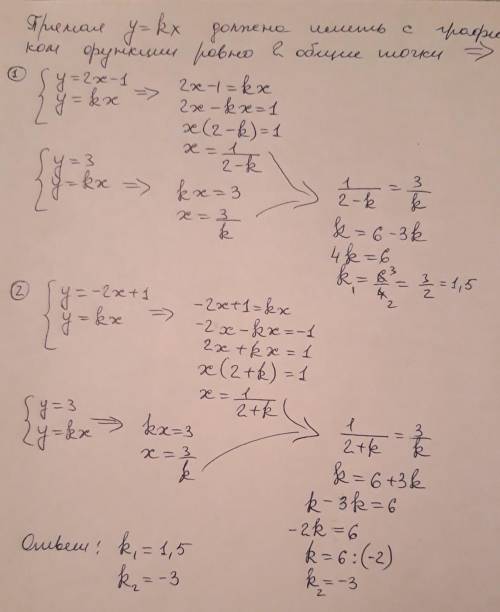 Прямая y=kx должна иметь с графи
ком функции ровно 2 общие точки ⇒
① { y=2x-1
y=kx ⇒ 2x-1=kx
2x-kx=1
x(2-k)=1
x = 1/(2-k)
{ y=3
y=kx ⇒ kx=3
x = 3/k
1/(2-k) = 3/k
k = 6-3k
4k=6
k₁ = 6/4 = 3/2 = 1,5
② { y=-2x+1
y=kx ⇒ -2x+1=kx
-2x-kx=-1
2x+kx=1
x(2+k)=1
x = 1/(2+k)
{ y=3
y=kx ⇒ kx=3
x = 3/k
1/(2+k) = 3/k
k = 6+3k
k-3k=6
-2k=6
k=6:(-2)
k₂=-3
Ответ: k₁=1,5
k₂=-3